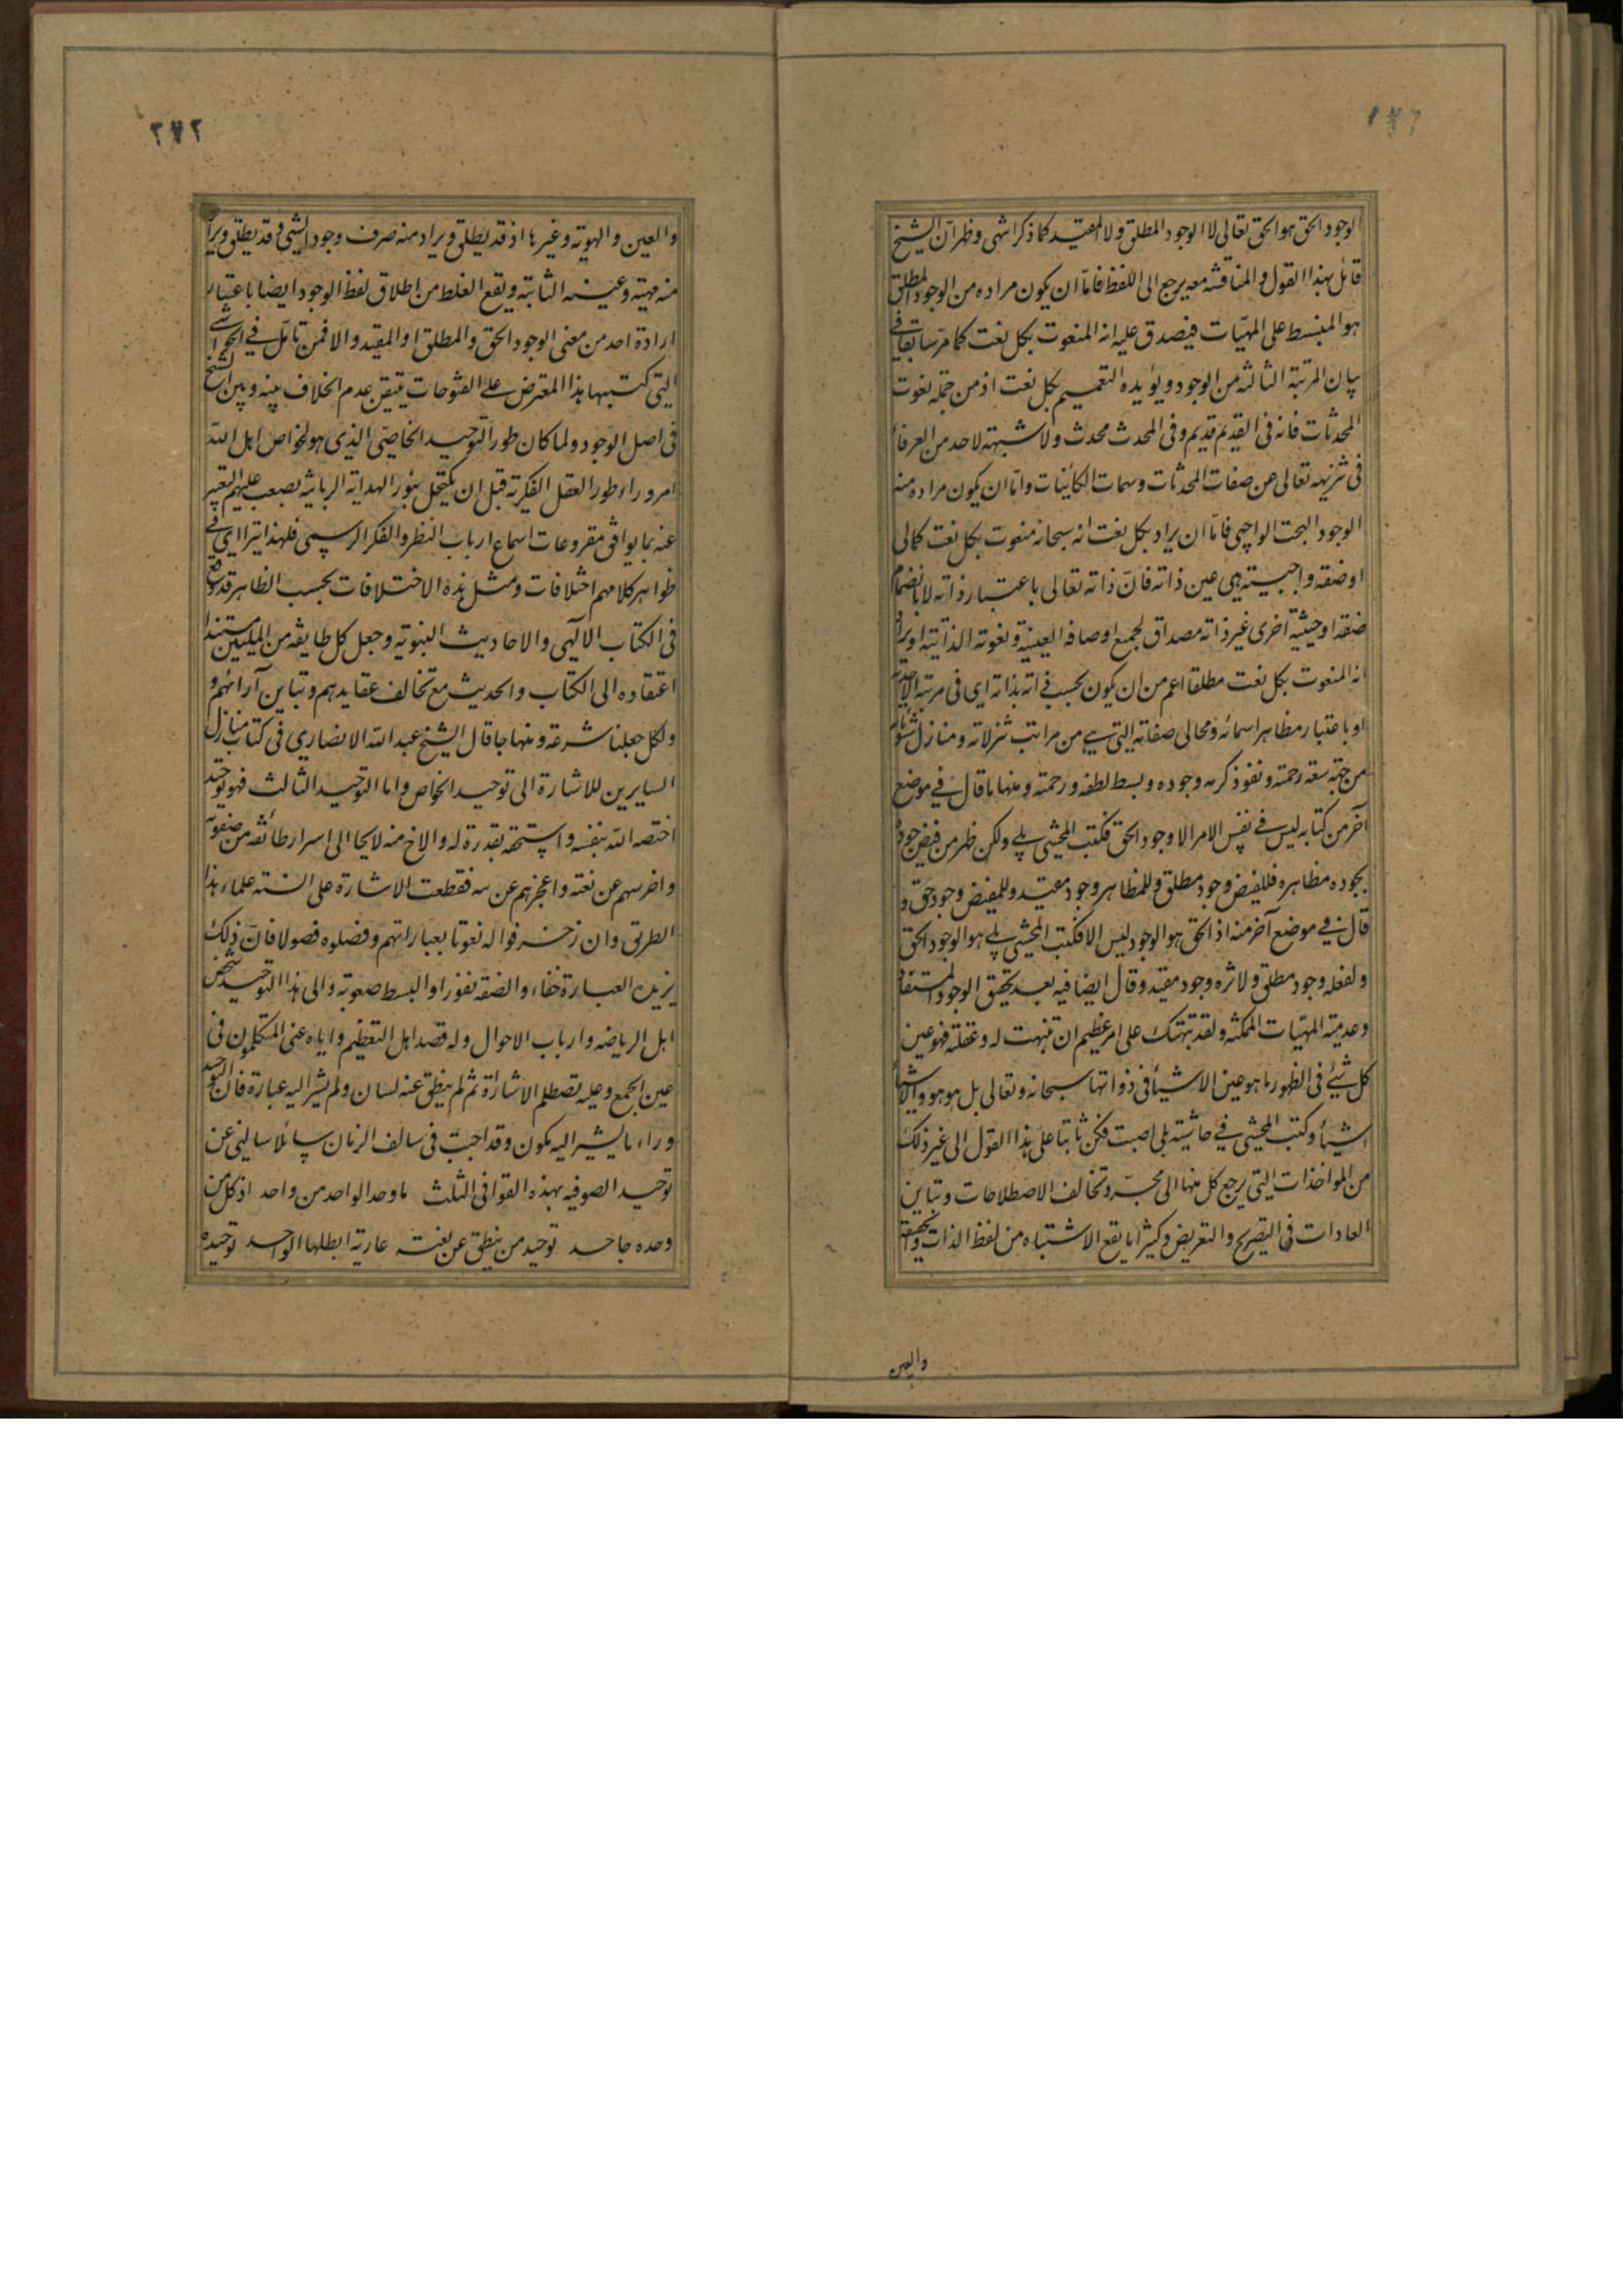 ١٧٦
الوجود الحق هو الحق تعالى لا الوجود المطلق ولا المقيد كما ذكر انتهى وظهر ان الشيخ
قائل بهذا القول والمناقشه معه يرجع الى اللفظ فامّا ان يكون مراده من الوجود المطلق
هو المنبسط على المهيّات فيصدق عليه انه المنعوت بكل نعت كما مرّ سابقا فى
بيان المرتبة الثالثه من الوجود ويؤيده التعميم بكل نعت اذ من جمله نعوت
المحدثات فانه فى القديم قديم وفى المحدث محدث ولا شبهته لاحد من العرفاء
فى تنزيهه تعالى عن صفات المحدثات وسمات الكائنات وامّا ان يكون مراده منه
الوجود البحت الواجبى فامّا ان يراد بكل نعت انه سبحانه منعوت بكل نعت كمالى
او صفة واجبيته هى عين ذاته فانّ ذاته تعالى باعتبار ذاته لا بانضمام
صفة او حيثية اخرى غير ذاته مصداق لجميع اوصافه العينية ونعوته الذاتية او يراد
انه المنعوت بكل نعت مطلقا اعم من ان يكون بحسب ذاته بذاته اى فى مرتبة الاحديه
او باعتبار مظاهر اسمائه ومجالى صفاته التى هى من مراتب تنزلاته ومنازل شئونه
من جهته سعة رحمته ونفوذ كرمه وجوده وبسط لطفه ورحمته ومنها ما قال فى موضع
آخر من كتابه ليس فى نفس الامر الا وجود الحق فكتب المحشى بلى ولكن ظهر من فيض جوده
بجوده مظاهره فللفيض وجود مطلق وللمظاهر وجود مقيد وللمفيض وجود حق و
قال فى موضع آخر منه اذ الحق هو الوجود ليس الا فكتب المحشى بلى هو الوجود الحق
ولفعله وجود مطلق ولاثره وجود مقيد وقال ايضا فيه بعد تحقيق الوجود المستفاد
وعدمية المهيّات الممكنه ولقد نبهتك على امر عظيم ان تنبهت له وعقلته فهو عين
كل شئ فى الظهور ما هو عين الاشياء فى ذواتها سبحانه وتعالى بل هو هو والاشياء
اشياء وكتب المحشى فى حاشيته بلى اصبت فكن ثابتا على هذا القول الى غير ذلك
من المواخذات التى يرجع كل منها الى مجرّد تخالف الاصطلاحات وتباين
العادات فى التصريح والتعريض وكثيرا ما يقع الاشتباه من لفظ الذات والحقيقة
والعين
٢٧٢
والعين والهوية وغيرها اذ قد يطلق ويراد منه صرف وجود الشئ وقد يطلق ويراد
منه مهيته وعينه الثابته ويقع الغلط من اطلاق لفظ الوجود ايضا باعتبار
ارادة احد من معنى الوجود الحق والمطلق او المقيد والا فمن تامّل فى الحواشى
التى كتبها هذا المعترض على الفتوحات تيقن عدم الخلاف بينه وبين الشيخ
فى اصل الوجود ولما كان طور التوحيد الخاصّى الذى هو لخواص اهل الله
امر وراء طور العقل الفكريه قبل ان يكتحل بنور الهداية الربانية يصعب عليهم التعبير
عنه بما يوافق مقروعات اسماع ارباب النظر والفكر الرسمى فلهذا يتراءى فى
ظواهر كلامهم اختلافات ومثل هذه الاختلافات بحسب الظاهر قد وقع
فى الكتاب الالهى والاحاديث النبوية وجعل كل طايفه من المليين مستندا
اعتقاده الى الكتاب والحديث مع تخالف عقايدهم وتباين آرائهم و
ولكل جعلنا شرعة ومنهاجا قال الشيخ عبد الله الانصارى فى كتاب منازل
السايرين للاشارة الى توحيد الخواص واما التوحيد الثالث فهو توحيد
اختصه الله بنفسه واستحقه بقدره له والاح منه لايحا الى اسرار طائفه من صفوته
واخرسهم عن نعته واعجزهم عن بثه فقطعت الاشارة على السنته علماء هذا
الطريق وان زخرفوا له نعوتا بعباراتهم وفصلوه فصولا فانّ ذلك
يزيده العبارة خفاء والصفه نفورا والبسط صعوبة والى هذا التوحيد شخص
اهل الرياضه وارباب الاحوال وله قصد اهل التعظيم واياه عنى المتكلمون فى
عين الجمع وعليه تصطلم الاشارة ثم لم ينطق عنه لسان ولم يشر اليه عبارة فان التوحيد
وراء ما يشير اليه مكون وقد اجبت فى سالف الزمان سائلا سالنى عن
توحيد الصوفيه بهذه القوافى الثلث ما وحد الواحد من واحد اذ كل من
وحده جاحد توحيد من ينطق عن نعته عارية ابطلها الواحد توحيده